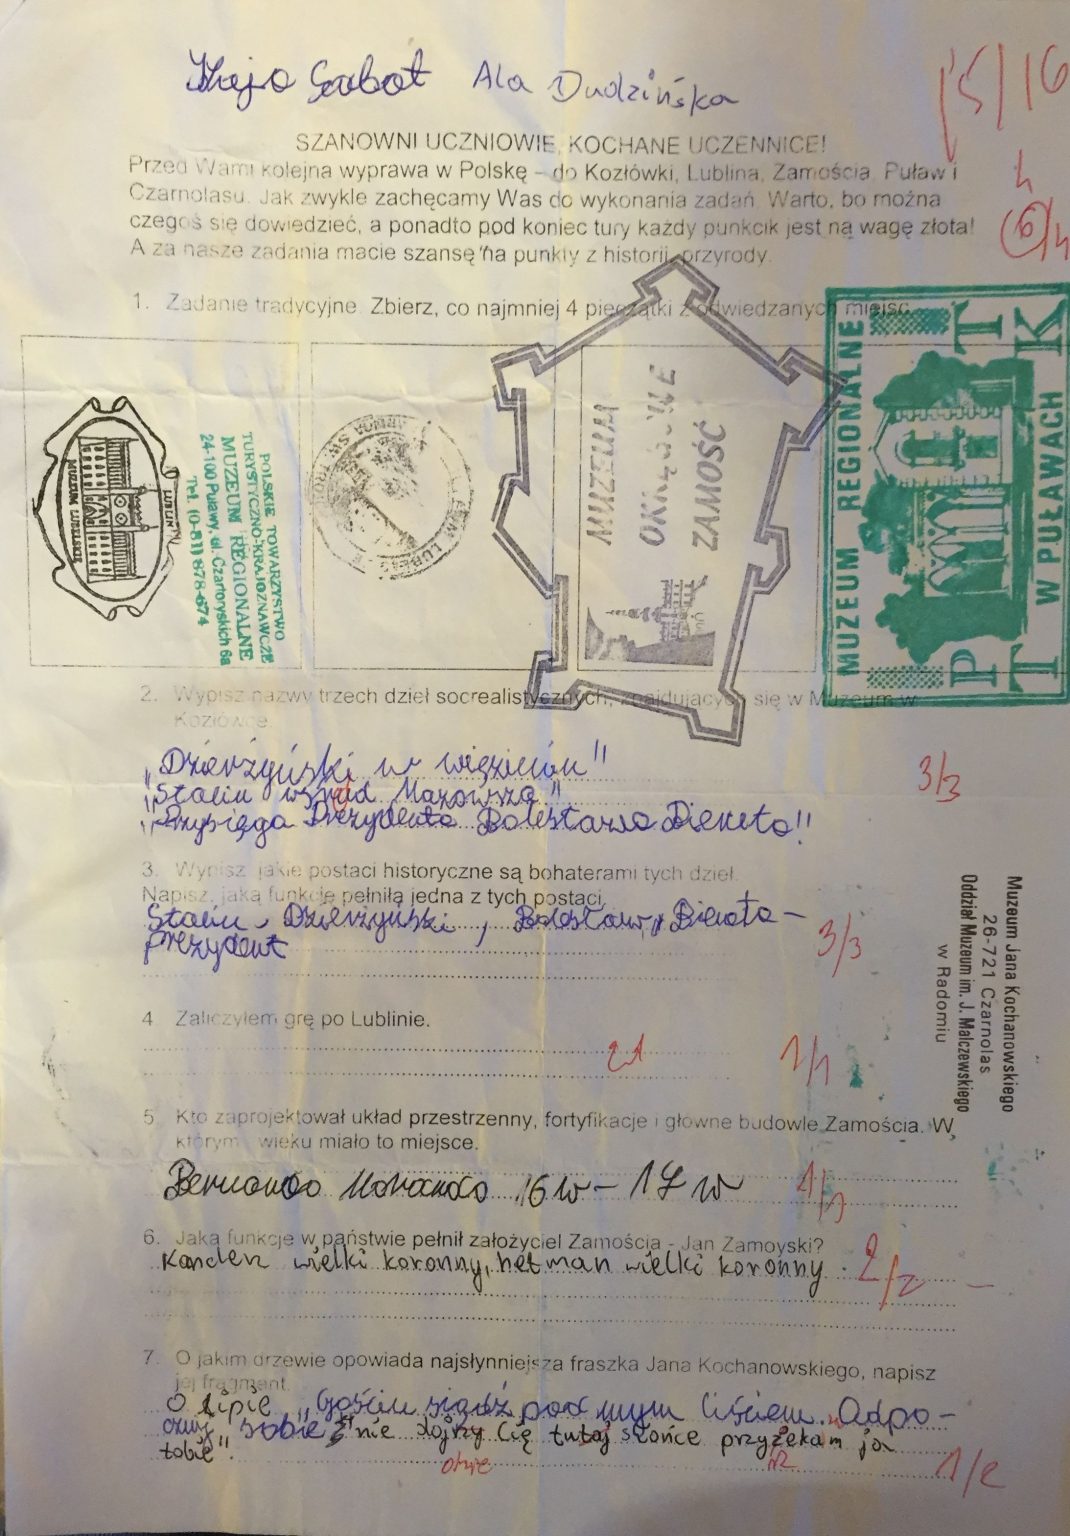 Ala Dudzińska
15/16
SZANOWNI UCZNIOWIE, KOCHANE UCZENNICE!
Przed Wami kolejna wyprawa w Polskę – do Kozłówki, Lublina, Zamościa, Puław i
Czarnolasu. Jak zwykle zachęcamy Was do wykonania zadań. Warto, bo można
czegoś się dowiedzieć, a ponadto pod koniec tury każdy punkcik jest na wagę złota!
A za nasze zadania macie szansę na punkty z historii, przyrody.
6/4
1. Zadanie tradycyjne. Zbierz, co najmniej 4 pieczątki z odwiedzanych miejsc.
LUBLIN
MUZEUM LUBELSKIE
POLSKIE TOWARZYSTWO
TURYSTYCZNO-KRAJOZNAWCZE
MUZEUM REGIONALNE
24-100 Puławy ul. Czartoryskich 6a
Tel. (0-81) 878-674
MUZEUM
OKRĘGOWE
ZAMOŚĆ
MUZEUM REGIONALNE
PTTK
W PUŁAWACH
2. Wypisz nazwy trzech dzieł socrealistycznych, znajdujących się w Muzeum w
Kozłówce.
„Dzierżyński w więzieniu"
„Stalin wśród Mazowsza"
„Przysięga Prezydenta Bolesława Bieruta"
3/3
3. Wypisz, jakie postaci historyczne są bohaterami tych dzieł.
Napisz, jaką funkcję pełniła jedna z tych postaci.
Stalin, Dzierżyński, Bolesław Bieruta –
prezydent
3/3
Muzeum Jana Kochanowskiego
26-721 Czarnolas
Oddział Muzeum im. J. Malczewskiego
w Radomiu
4 Zaliczyłem grę po Lublinie.
1/1
5. Kto zaprojektował układ przestrzenny, fortyfikacje i główne budowle Zamościa. W
którym wieku miało to miejsce.
Bernando Morando 16 w – 17 w
1/1
6. Jaką funkcję w państwie pełnił założyciel Zamościa - Jan Zamoyski?
Kanclerz wielki koronny, hetman wielki koronny.
2/2
7. O jakim drzewie opowiada najsłynniejsza fraszka Jana Kochanowskiego, napisz
jej fragment.
O lipie „Gościu siądź pod mym liściem. Odpo-
cznij sobie nie dojrzy Cię tutaj słońce przyżekam ja
tobie".
1/2